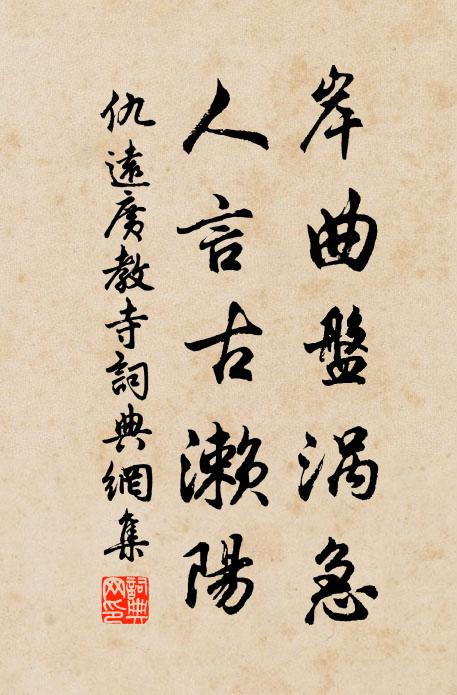 岸曲盤涡急
人言古濑陽
仇遠廣教寺詞典網集
詞典網印